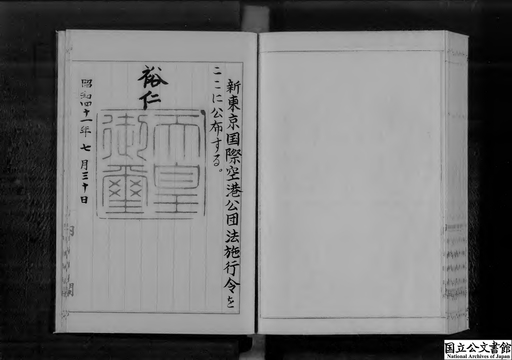 新東京国際空港公団法施行令を
ここに公布する。
裕仁
天皇
御璽
昭和四十一年七月三十日
国立公文書館
National Archives of Japan